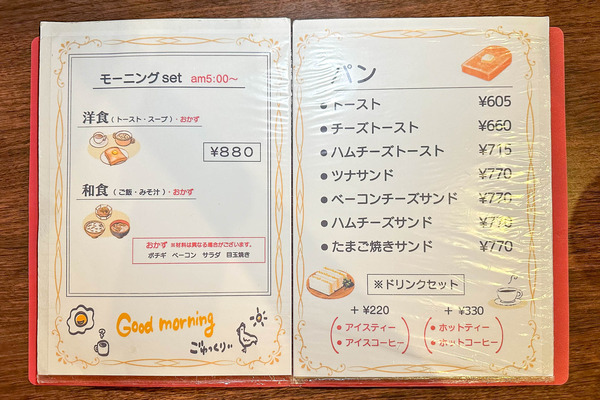 モーニングset am5:00～
洋食（トースト・スープ）・おかず
¥880
和食（ご飯・みそ汁）・おかず
おかず ※材料は異なる場合がございます。
ポチギ ベーコン サラダ 目玉焼き
Good morning
ごゆっくり
パン
● トースト ¥605
● チーズトースト ¥660
● ハムチーズトースト ¥715
● ツナサンド ¥770
● ベーコンチーズサンド ¥770
● ハムチーズサンド ¥770
● たまご焼きサンド ¥770
※ドリンクセット
＋¥220
● アイスティー
● アイスコーヒー
＋¥330
● ホットティー
● ホットコーヒー